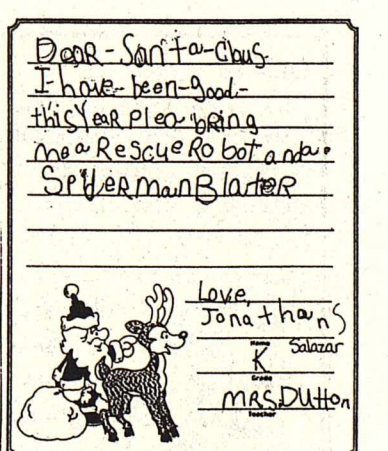 Dear-Santa-Claus
I-have-been-good-
this Year Plea bring
me a Rescue Robot and a.
SPiderman Blarter
Love,
Jonathan S
Name
Salazar
K
Grade
MRS. Dutton
Teacher